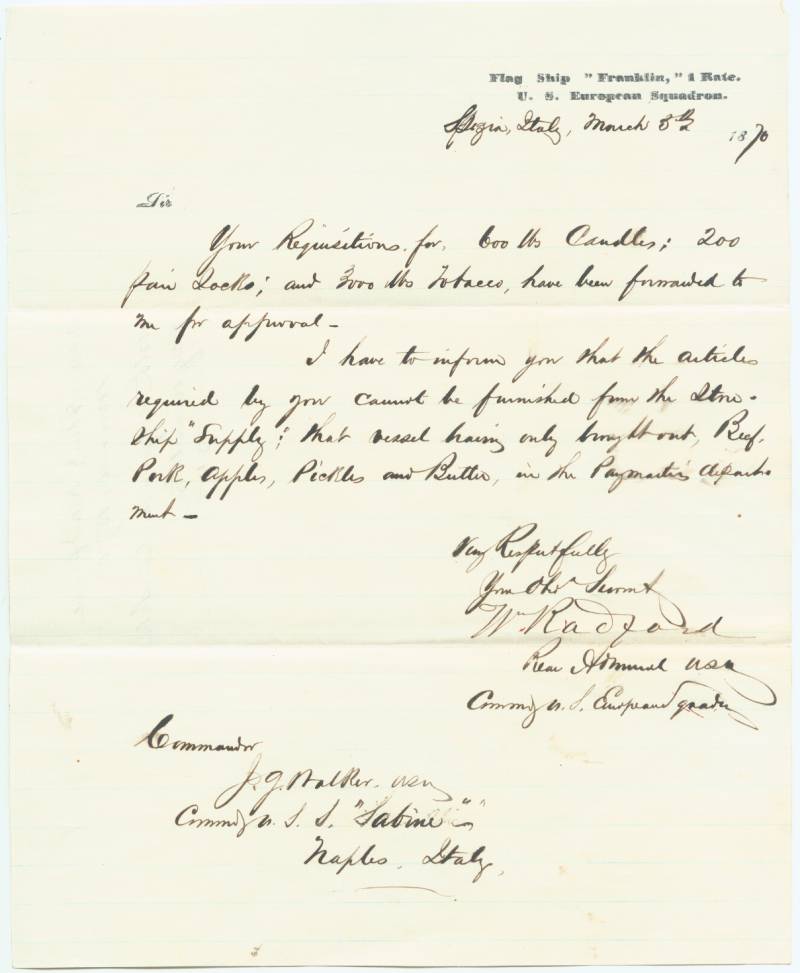 Flag Ship "Franklin," 1 Rate.
U. S. European Squadron.
Spezia, Italy, March 8th 1870
Sir
Your Requisitions for 600 lbs Candles; 200
pair Socks; and 3000 lbs Tobacco, have been forwarded to
me for approval —
I have to inform you that the articles
required by you cannot be furnished from the Store-
ship "Supply"; that vessel having only brought out, Beef,
Pork, Apples, Pickles and Butter, in the Paymaster's depart-
ment —
Very Respectfully
Your Obt Servant
Wm Radford
Rear Admiral USN
Commdg U. S. European Squadn
Commander
J. G. Walker. USN
Commdg U. S. S. "Sabine"
Naples. Italy,